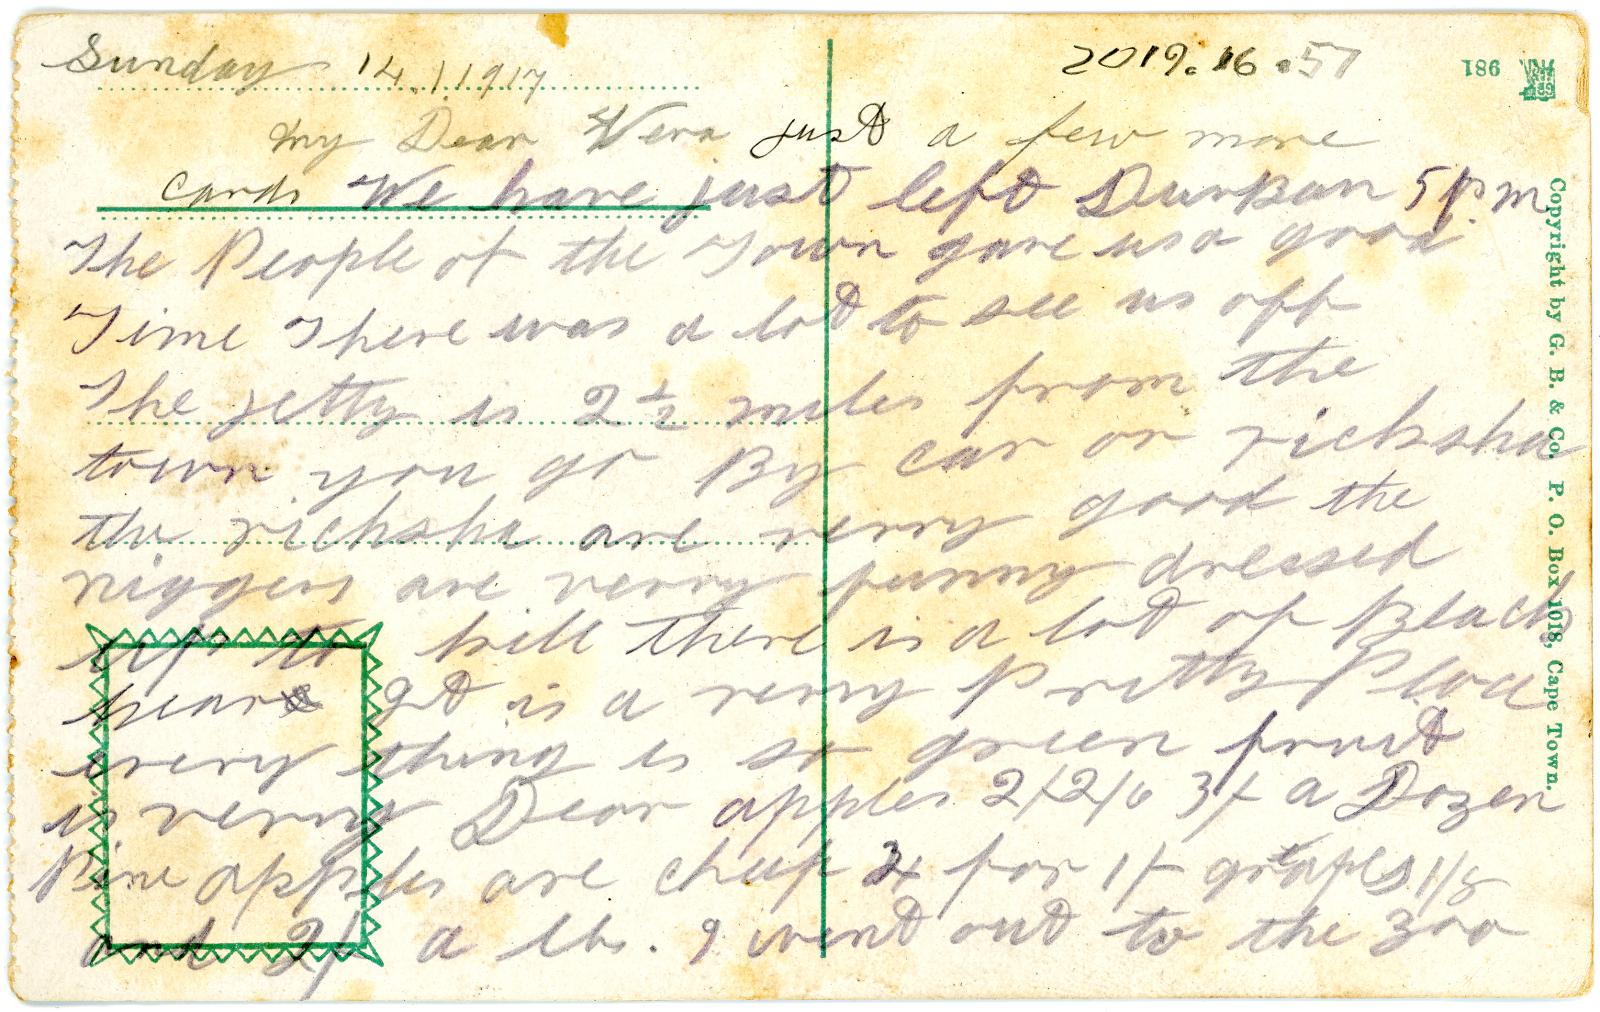 Sunday 14.1.1917
2019.16.57
981
My Dear Vera just a few more
cards We have just left Durban 5 p.m
The People of the Town gave us a good
Time There was a lot to see us off
The jetty is 2 1/2 miles from the
town you go By car or ricksha
the ricksha are verry good the
niggers are verry funny dressed
up to kill there is a lot of Black
hear It is a verry Pretty Place
every thing is so green fruit
is verry Dear apples 2/ 2/6 3/ a Dozen
Pine apples are cheap 2 for 1/ grapes 1/8
and 2/ a lb. I went out to the Zoo
Copyright by G. B. & Co. P. O. Box 1018, Cape Town.